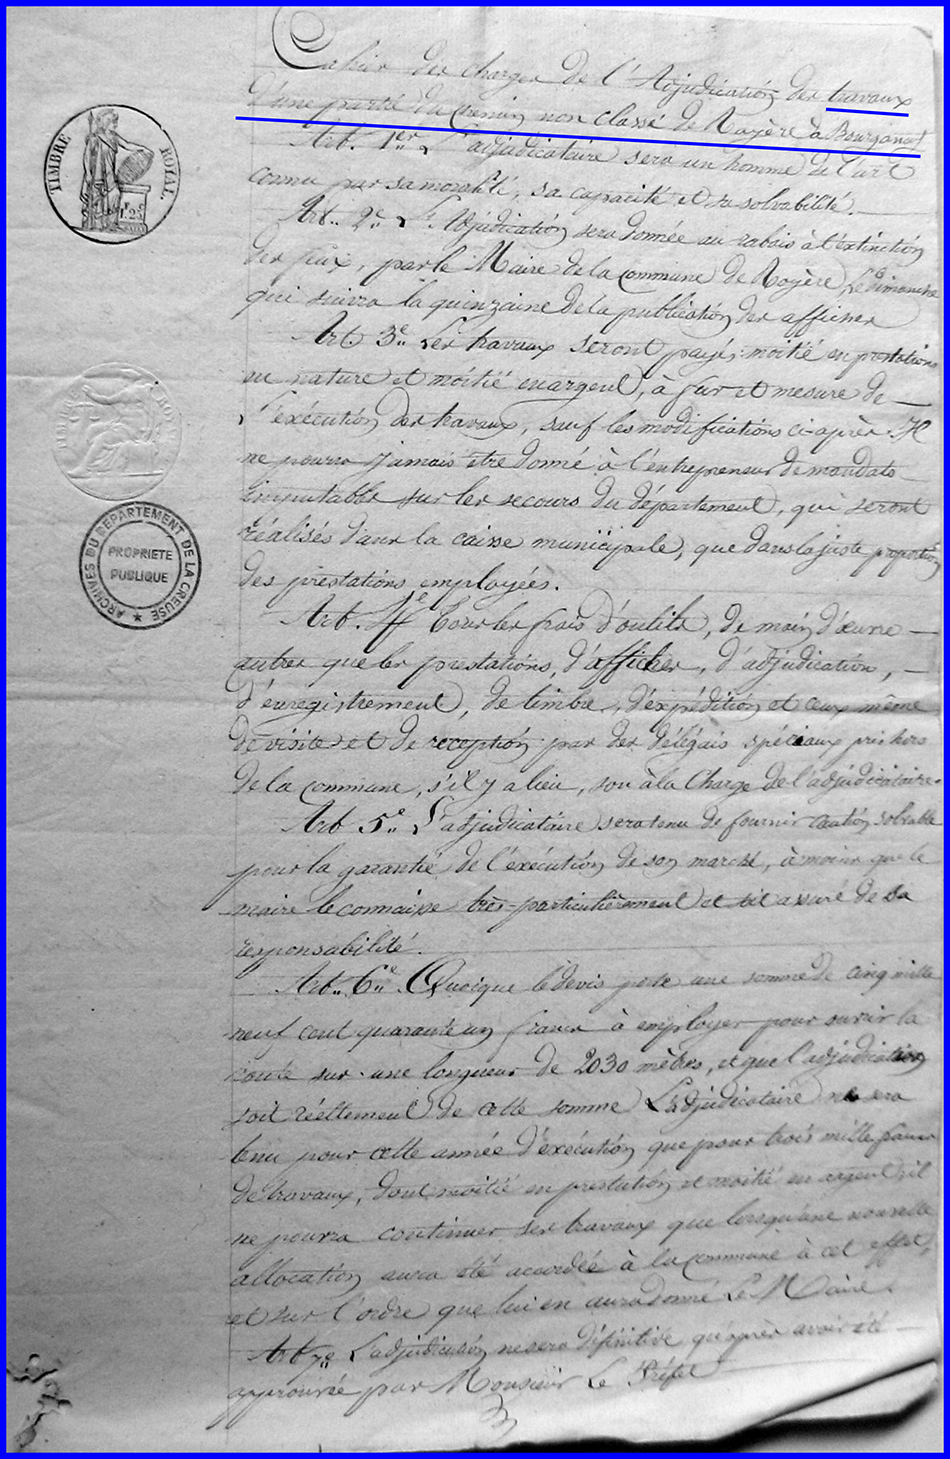 Cahier des charges de l'Adjudication des travaux
d'une partie du Chemin non classé de Royère à Bourganeuf
Art. 1er L'adjudicataire sera un homme de l'art
connu par sa moralité, sa capacité et sa solvabilité.
Art. 2e L'Adjudication sera donnée au rabais à l'extinction
des feux, par le Maire de la commune de Royère, le dimanche
qui suivra la quinzaine de la publication des affiches
Art 3e Les travaux seront payés: moitié en prestations
en nature et moitié en argent, à fur et mesure de
l'exécution des travaux, sauf les modifications ci-après. Il
ne pourra jamais être donné à l'entrepreneur de mandats
imputable sur les secours du département, qui seront
réalisés dans la caisse municipale, que dans la juste proportion
des prestations employées.
Art. 4e Tous les frais d'outils, de main d'œuvre
autres que les prestations, d'affiches, d'adjudication,
d'enregistrement, de timbre, d'expédition et ceux même
de visite et de réception par des délégués spéciaux pris hors
de la commune, s'il y a lieu, son à la Charge de l'adjudicataire.
Art 5e L'adjudicataire sera tenu de fournir caution solvable
pour la garantie de l'exécution de son marché, à moins que le
maire le connaisse très-particulièrement et soit assuré de sa
responsabilité.
Art. 6e Quoique le devis porte une somme de cinq mille
neuf cent quarante un francs à employer pour ouvrir la
route sur une longueur de 2030 mètres, et que l'adjudication
soit réellement de cette somme L'adjudicataire ne sera
tenu pour cette année d'exécution que pour trois mille francs
de travaux, dont moitié en prestation et moitié en argent, il
ne pourra continuer ses travaux que lorsqu'une nouvelle
allocation aura été accordée à la commune à cet effet,
et sur l'ordre que lui en aura donné Le Maire.
Art 7e L'adjudication ne sera définitive qu'après avoir été
approuvée par Monsieur Le Préfet
TIMBRE ROYAL.
1F 25C
ARCHIVES DU DÉPARTEMENT DE LA CREUSE
PROPRIETE
PUBLIQUE